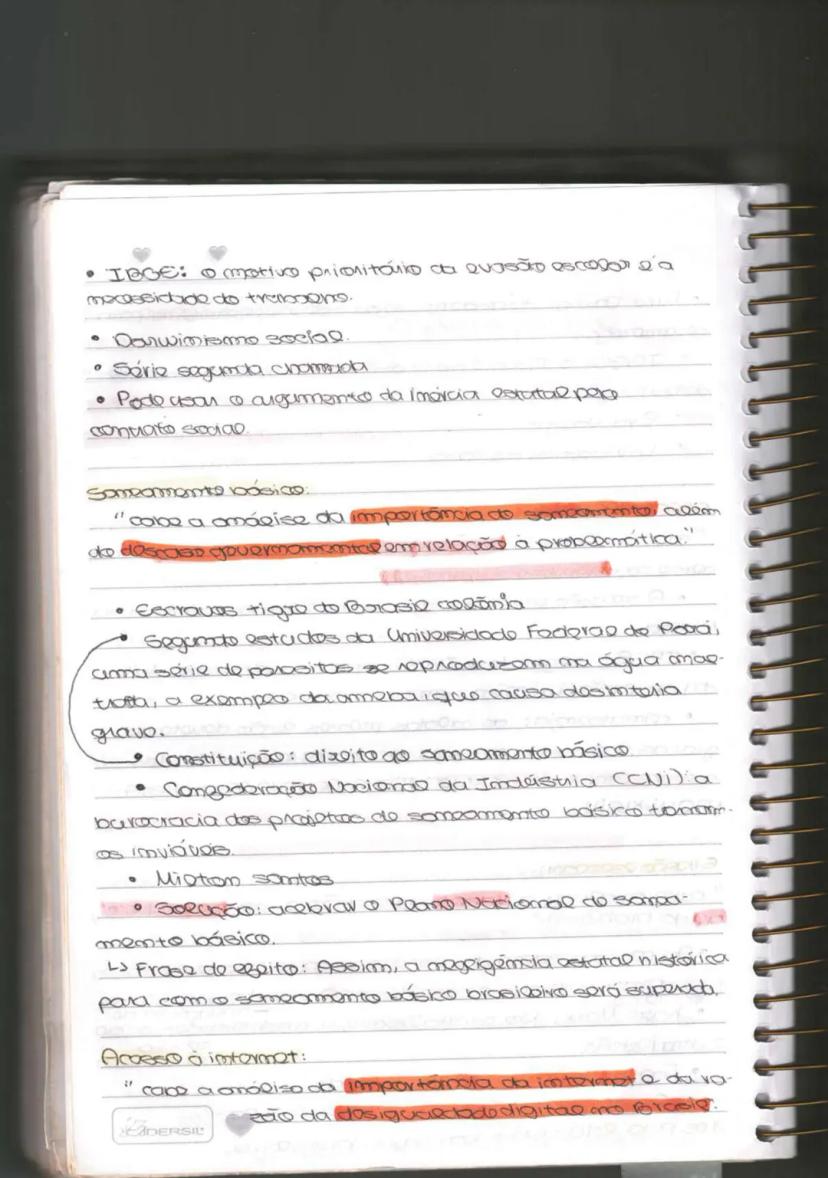 • IBGE: o motivo prioritário da evasão escolar é a
necessidade do trabalho.
• Darwinismo social.
• Série segunda chamada
• Pode usar o argumento da inércia estatal pelo
contrato social.
Saneamento básico:
"cabe a análise da importância do saneamento, além
do descaso governamental em relação à problemática."
• Escravos tigre do Brasil colônia
• Segundo estudos da Universidade Federal do Pará,
uma série de parasitas se reproduzem na água mal-
trata, a exemplo da ameba, que causa desinteria
grave.
• Constituição: direito ao saneamento básico.
• Confederação Nacional da Indústria (CNI): a
burocracia dos projetos de saneamento básico tornam-
os inviáveis.
• Milton Santos
• Solução: acelerar o Plano Nacional de sanea-
mento básico.
↳ Frase de efeito: Assim, a negligência estatal histórica
para com o saneamento básico brasileiro será superada.
Acesso à internet:
"cabe a análise da importância da internet e da ra-
zão da desigualdade digital no Brasil".
CADERSIL